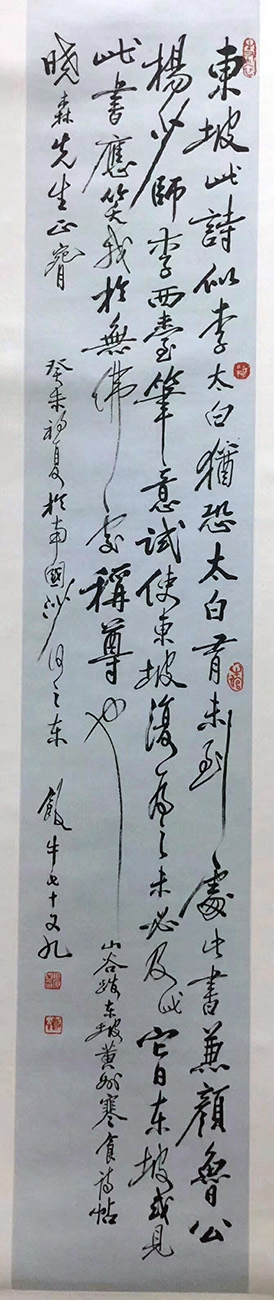 東坡此詩似李太白猶恐太白有未到處此書兼顏魯公
楊少師李西臺筆意試使東坡復為之未必及此它日東坡或見
此書應笑我於無佛處稱尊也
山谷跋东坡黄州寒食诗帖
曉森先生正腕
癸未初夏於南國沙河之东
飯牛七十又九